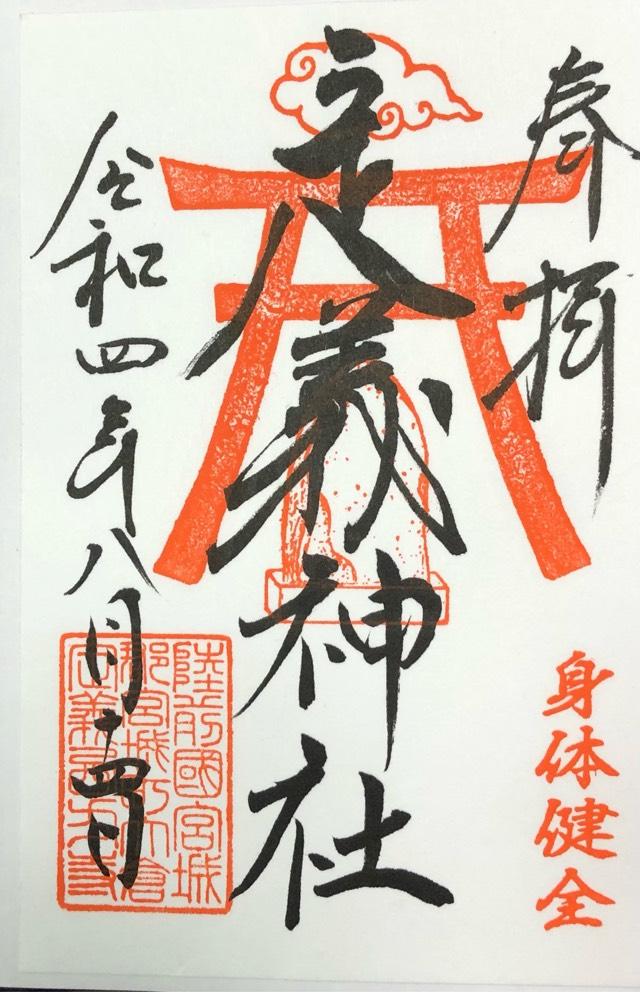 奉拝
身体健全
定義神社
令和四年八月十四日
陸前國宮城